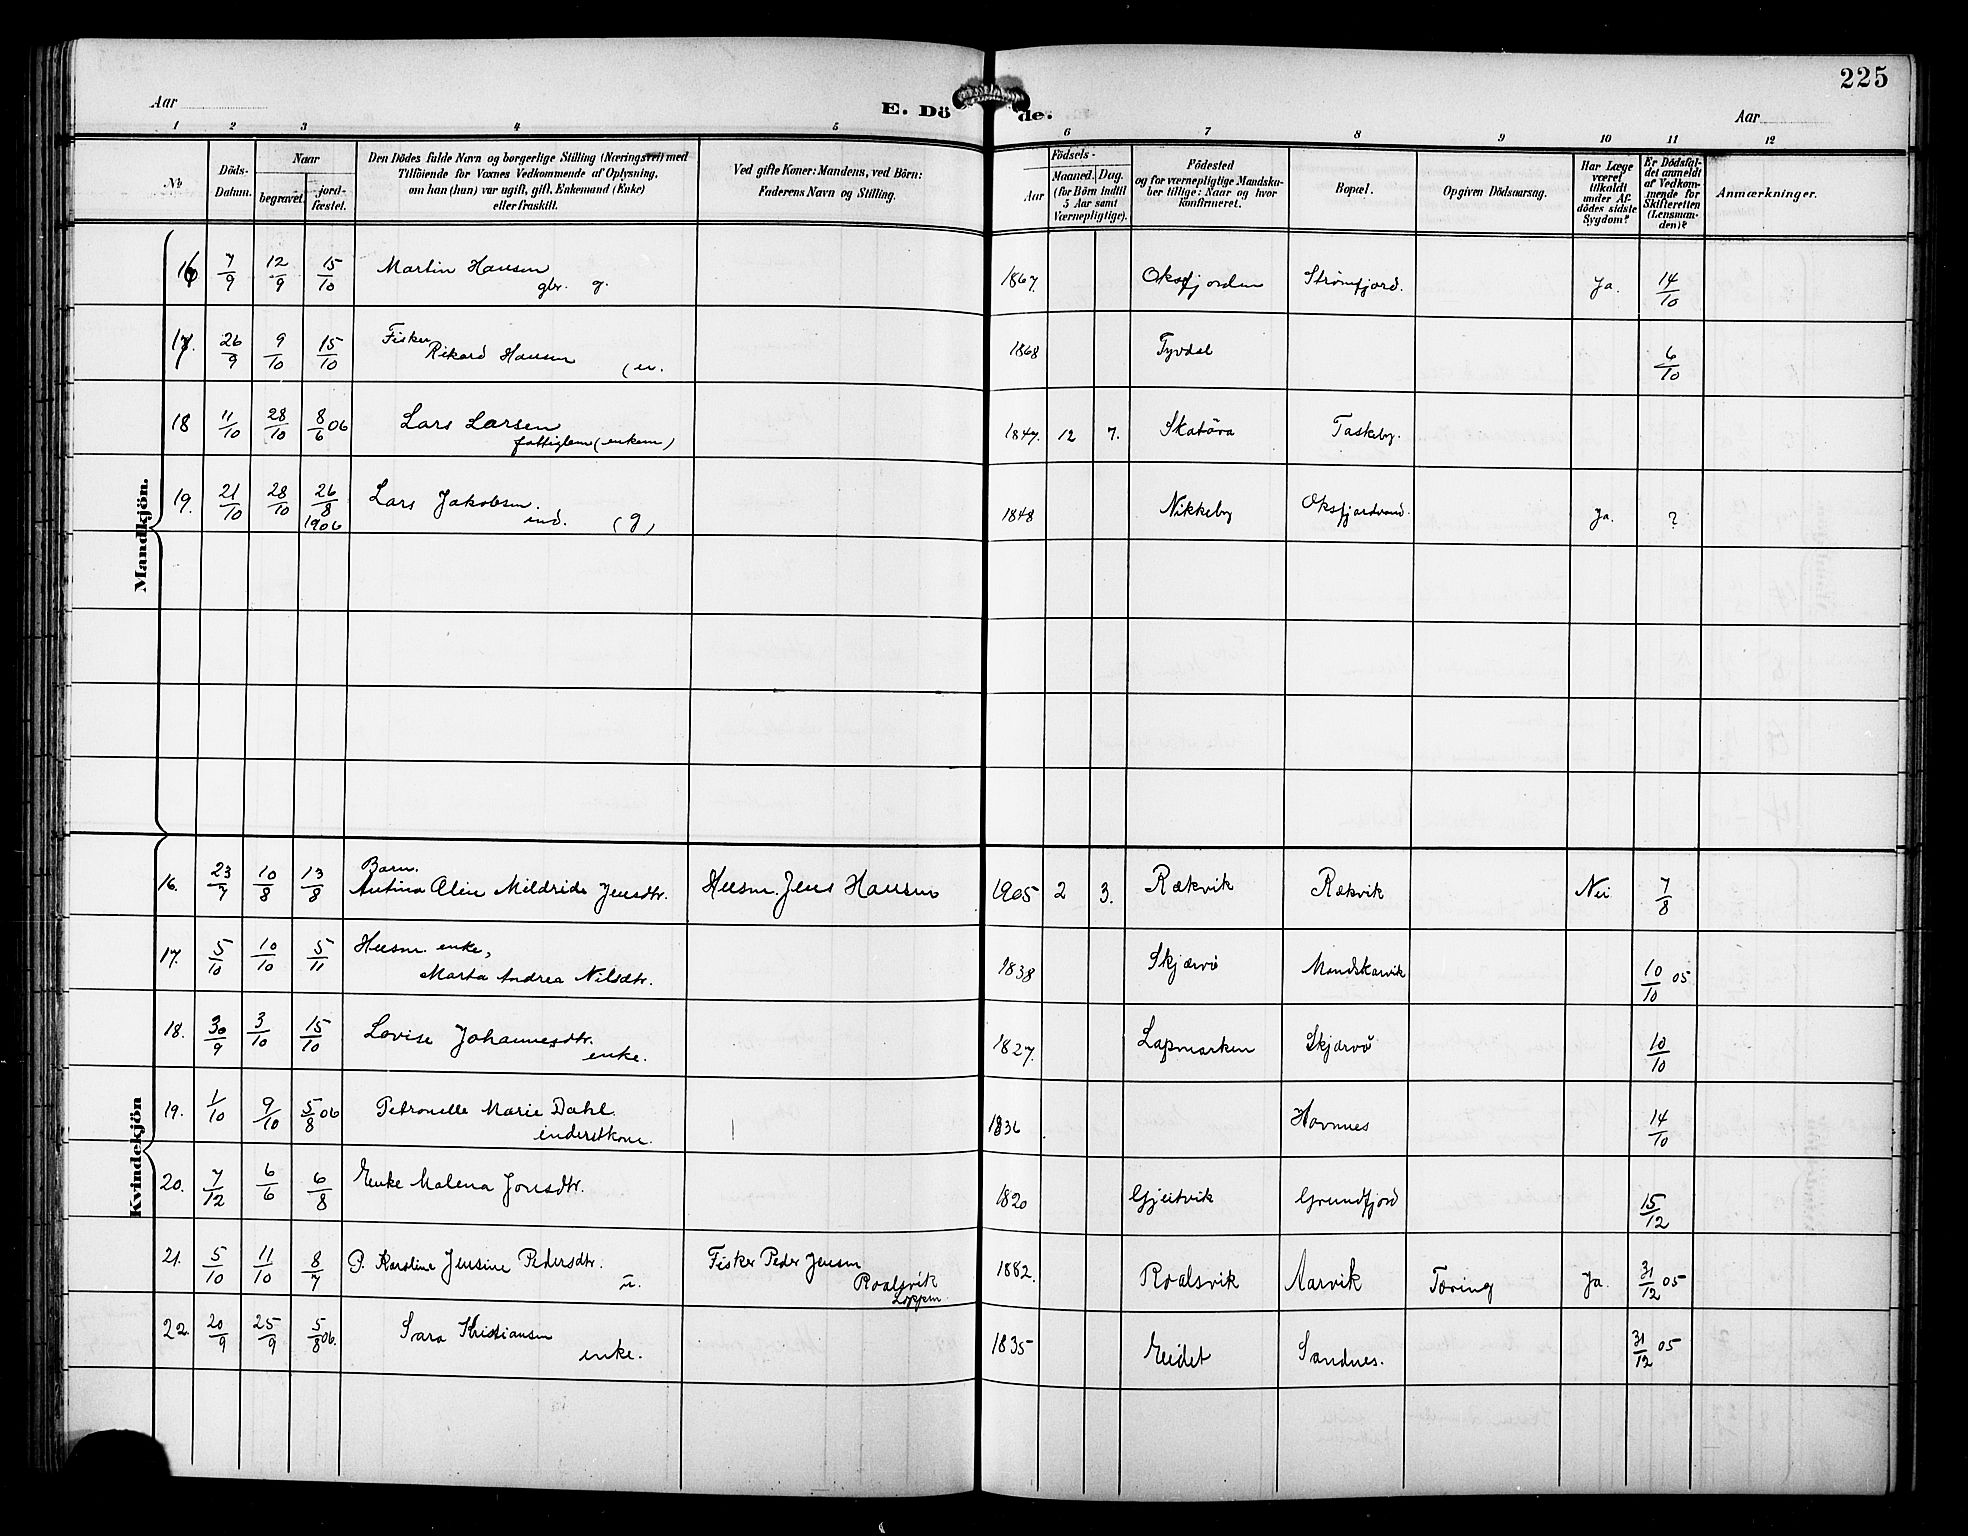 225
Aar
E. Dö de.
Aar
1 2 3 4 5 6 7 8 9 10 11 12
No
Döds-Datum.
Naar
begravet.
jord-fæstet.
Den Dödes fulde Navn og borgerlige Stilling (Næringsvei) med
Tilföiende for Voxnes Vedkommende af Oplysning,
om han (hun) var ugift, gift, Enkemand (Enke)
eller fraskilt.
Ved gifte Koner: Mandens, ved Börn:
Faderens Navn og Stilling.
Födsels-
Aar
Maaned. Dag.
(for Börn indtil
5 Aar samt
Værnepligtige).
Födested
og for værnepligtige Mandska-
ber tillige: Naar og hvor
konfirmeret.
Bopæl.
Opgiven Dödsaarsag.
Har Læge
været
tilkaldt
under Af-
dödes sidste
Sygdom?
Er Dödsfal-
det anmeldt
af Vedkom-
mende for
Skifteretten
(Lensman-
den)?
Anmærkninger.
Mandkjön.
16 7/9 12/9 15/10 Martin Hansen 1867. Oksfjorden Strømfjord. Ja. 14/10
gbr. g.
17. 26/9 9/10 15/10 Fisker 1868 Tyvdal 6/10
Rikard Hansen
18 11/10 28/10 8/6 06 Lars Larsen 1847. 12 7. Skatöra Taskeby.
fattiglem (enkem)
19. 21/10 28/10 26/8 1906 Lars Jakobsen. 1848 Nikkeby Oksfjordvand. Ja. ?
ind. (g)
Kvindekjön
16. 23/7 10/8 13/8 Barn.
Antina Mildride Jensdtr. Husm. Jens Hansen 1905 2 3. Rækvik Rækvik Nei 7/8
17. 5/10 10/10 5/11 Husm. enke,
Marta Andrea Nilsdtr. 1838 Skjærvö 10/10 05
18. 30/9 3/10 15/10 Lovise Johannesdtr. 1827. Lapmarken Skjærvö 10/10
enke.
19. 1/10 9/10 5/8 06 Petronelle Marie Dahl. 1836 Havnnes 14/10
inderstkone.
20. 7/12 6/6 6/8 Enke Malena Jonsdtr. 1820 Gjeitvik Grundfjord 15/12
21. 5/10 11/10 8/7 P. Karoline Jensine Pedersdtr. Fisker Peder Jensen 1882. Roalsvik Aarvik Tæring Ja. 31/12 05
u. Roalsvik
Loppen
22. 20/9 25/9 5/8 06. Sara Kristiansen 1835 Eidet Sandnes. 31/12 05
enke.